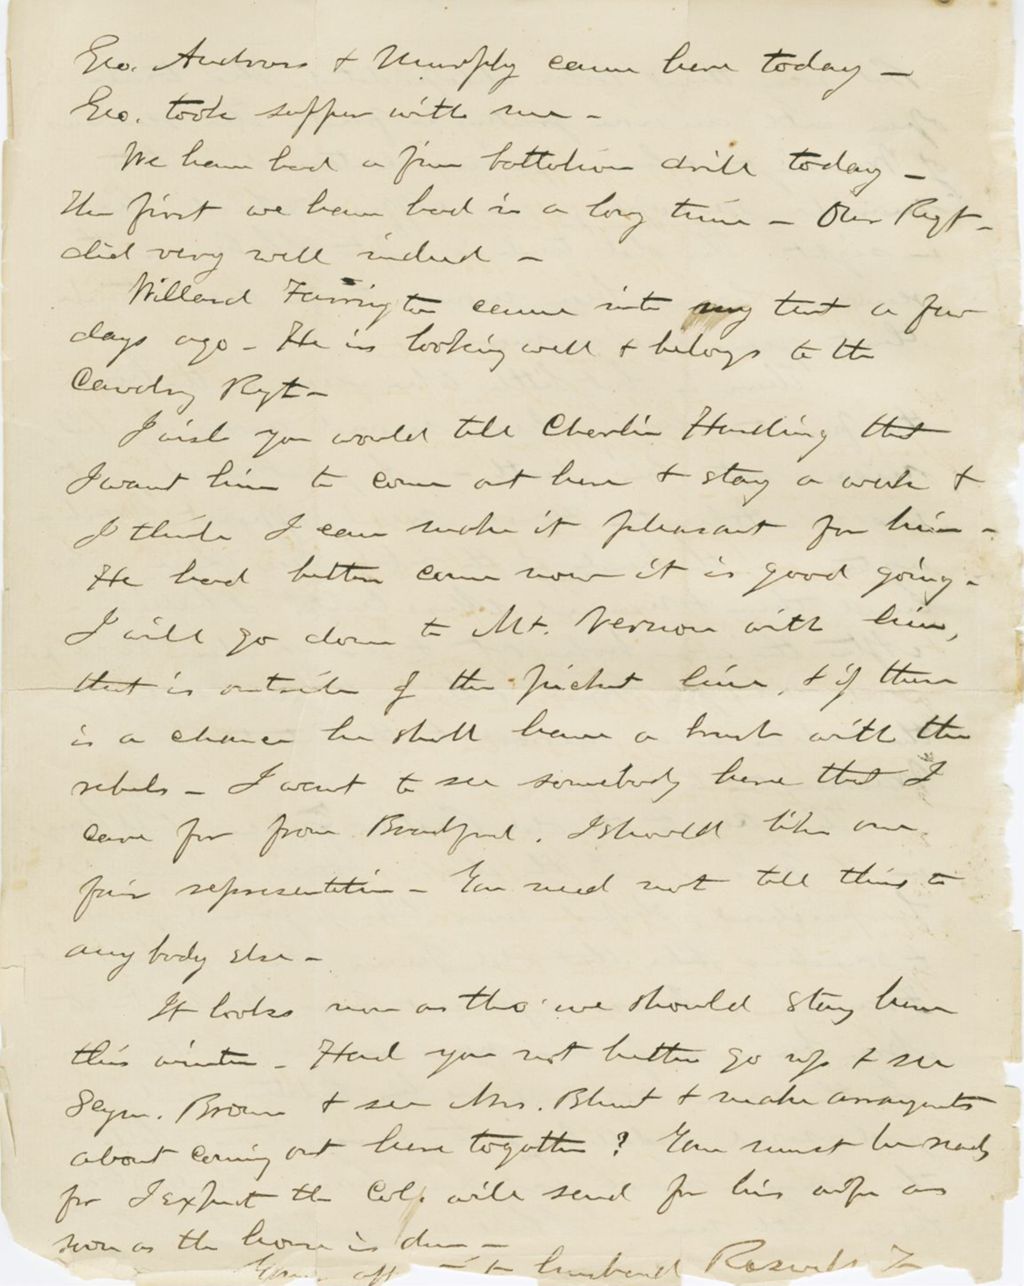 Geo. Andrews & Murphy came here today –
Geo. took supper with me –
We have had a fine battalion drill today –
the first we have had in a long time – Our Regt –
did very well indeed –
Willard Farrington came into my tent a few
days ago – He is looking well & belongs to the
Cavalry Regt –
I wish you would tell Charlie Harding that
I want him to come out here & stay a week &
I think I can make it pleasant for him –
He had better come now it is good going –
I will go down to Mt. Vernon with him,
that is outside of the picket line, & if there
is a chance he shall have a brush with the
rebels – I want to see somebody here that I
care for from Bradford. I should like one
fair representation – You need not tell this to
any body else –
It looks now as tho' we should stay here
this winter – Had you not better go up & see
Seym. Brown & see Mrs. Blunt & make arrangements
about coming out here together? You must be ready
for I expect the Col. will send for his wife as
soon as the house is done –
Your aff husband Roswell